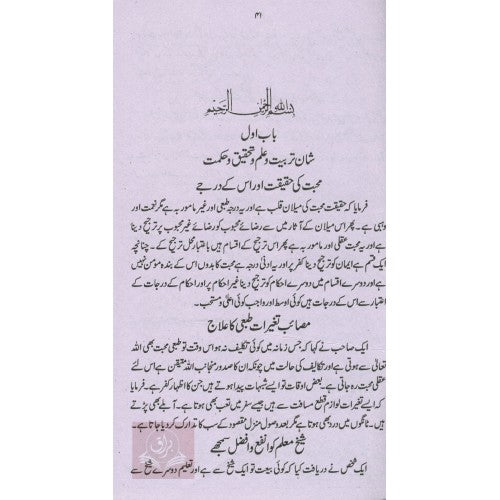 ۴۱
بسم اللہ الرحمن الرحیم
باب اول
شان تربیت و علم و تحقیق و حکمت
محبت کی حقیقت اور اس کے درجے
فرمایا کہ حقیقت محبت کی میلان قلب ہے اور یہ درجہ طبعی اور غیر مامور بہ ہے مگر نعمت اور
وہبی ہے۔ پھر اس میلان کے آثار میں سے رضائے محبوب کو رضائے غیر محبوب پر ترجیح دینا
ہے اور یہ محبت عقلی اور مامور بہ ہے پھر اس ترجیح کے اقسام ہیں باعتبار محل ترجیح کے۔ چنانچہ
ایک قسم ہے ایمان کو ترجیح دینا کفر پر اور یہ ادنی درجہ ہے محبت کا بدوں اس کے بندہ مومن نہیں
ہے اور دوسرے اقسام میں دوسرے احکام کو ترجیح دینا غیر احکام پر اور احکام کے درجات کے
اعتبار سے اس کے درجات ہیں کوئی اوسط اور واجب کوئی اعلیٰ و مستحب۔
مصائب تغیرات طبعی کا علاج
ایک صاحب نے کہا کہ جس زمانہ میں کوئی تکلیف نہ ہو اس وقت تو طبعی محبت بھی اللہ
تعالی سے ہوتی ہے اور تکالیف کی حالت میں چونکہ ان کا صدور منجانب اللہ متیقن ہے اس لئے
عقلی محبت رہ جاتی ہے۔ بعض اوقات تو ایسے شبہات پیدا ہوتے ہیں جن کا اظہار کفر ہے۔ فرمایا
کہ ایسے تغیرات لوازم قطع مسافت سے ہیں جیسے سفر میں تعب بھی ہوتا ہے۔ آبلے بھی پڑتے
ہیں۔ ٹانگوں میں درد بھی ہوتا ہے مگر بعد وصول منزل مقصود کے سب کا تدارک کر دیا جاتا ہے۔
شیخ معلم کو انفع و افضل سمجھے
ایک شخص نے دریافت کیا کہ کوئی بیعت تو ایک شیخ سے ہے اور تعلیم دوسرے شیخ سے